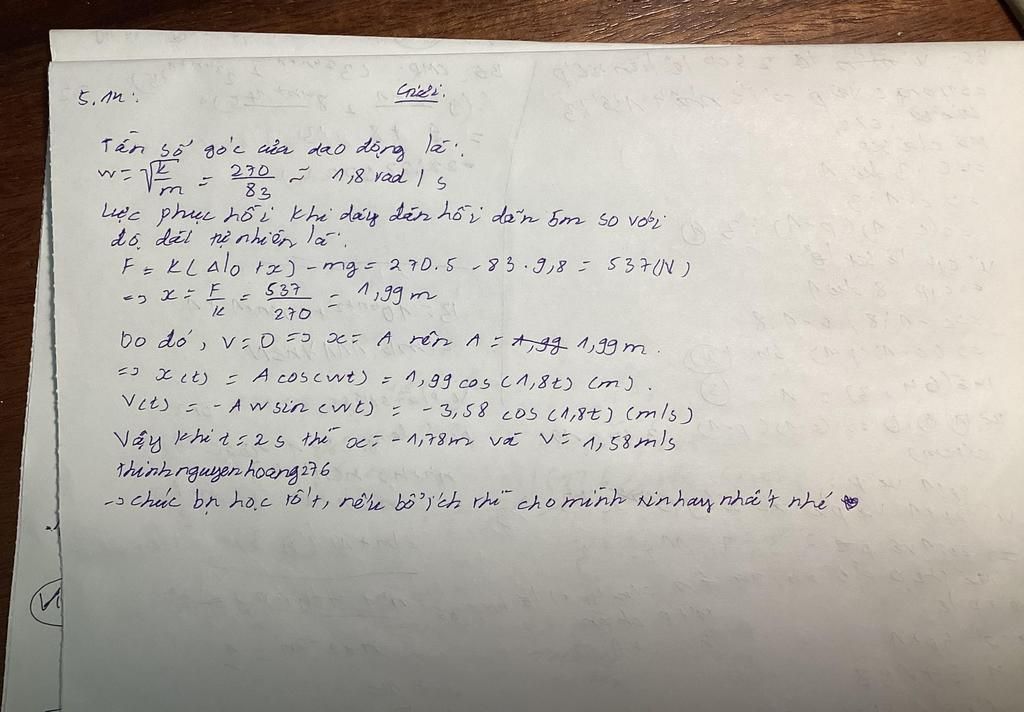 5.14:
Giải.
Tần số góc của dao động là:
w = √k/m = 270/83 ≈ 1,8 rad/s
Lực phục hồi khi dây đàn hồi dãn 5m so với
độ dài tự nhiên là:
F = K(Δl0 + x) - mg = 270.5 - 83.9,8 = 537(N)
=> x = F/K = 537/270 = 1,99m
Do đó, v=0 => x = A nên A = 1,99 1,99m.
=> x(t) = A cos(wt) = 1,99 cos(1,8t) (m).
V(t) = -Awsin(wt) = -3,58 cos(1,8t) (m/s)
Vậy khi t=2s thì x=-1,78m và V= 1,58m/s
thinhnguyenhoang276
-> chúc bn học tốt, nếu bổ ích thì cho mình xin hay nhất nhé